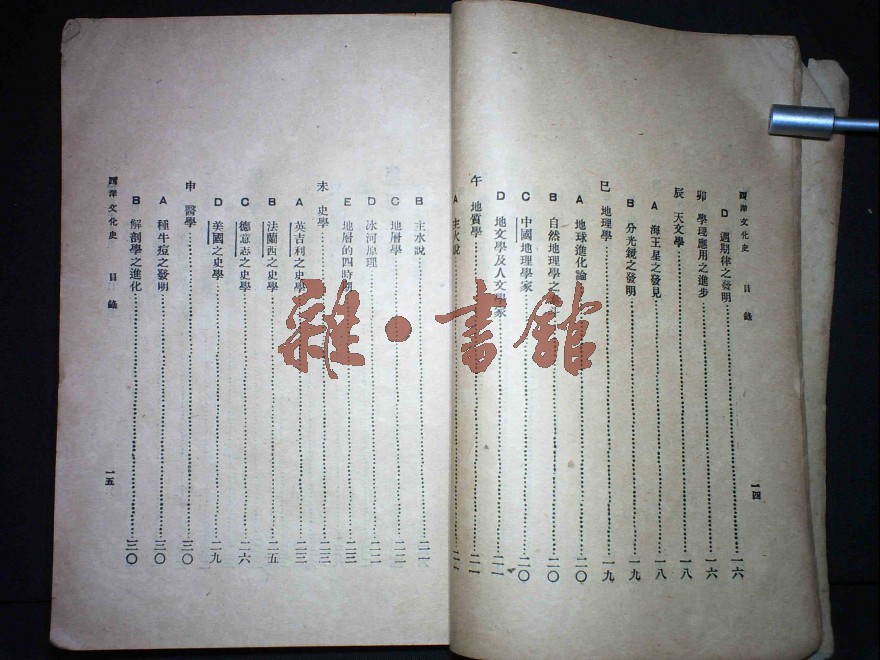 西洋文化史　目錄
D　週期律之發明……一六
卯　學理應用之進步……一六
辰　天文學……一八
A　海王星之發見……一八
B　分光鏡之發明……一九
巳　地理學……一九
A　地球進化論……二〇
B　自然地理學之……二〇
C　中國地理學家……二〇
D　地文學及人文學家……二一
午　地質學……二一
A　主火說……二一
一四
B　主水說……二二
C　地層學……二二
D　冰河原理……二二
E　地層的四時期……二三
未　史學……二三
A　英吉利之史學……二三
B　法蘭西之史學……二五
C　德意志之史學……二六
D　美國之史學……二九
申　醫學……三〇
A　種牛痘之發明……三〇
B　解剖學之進化……三〇
西洋文化史　目錄
一五
雜·書館